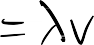 = λv